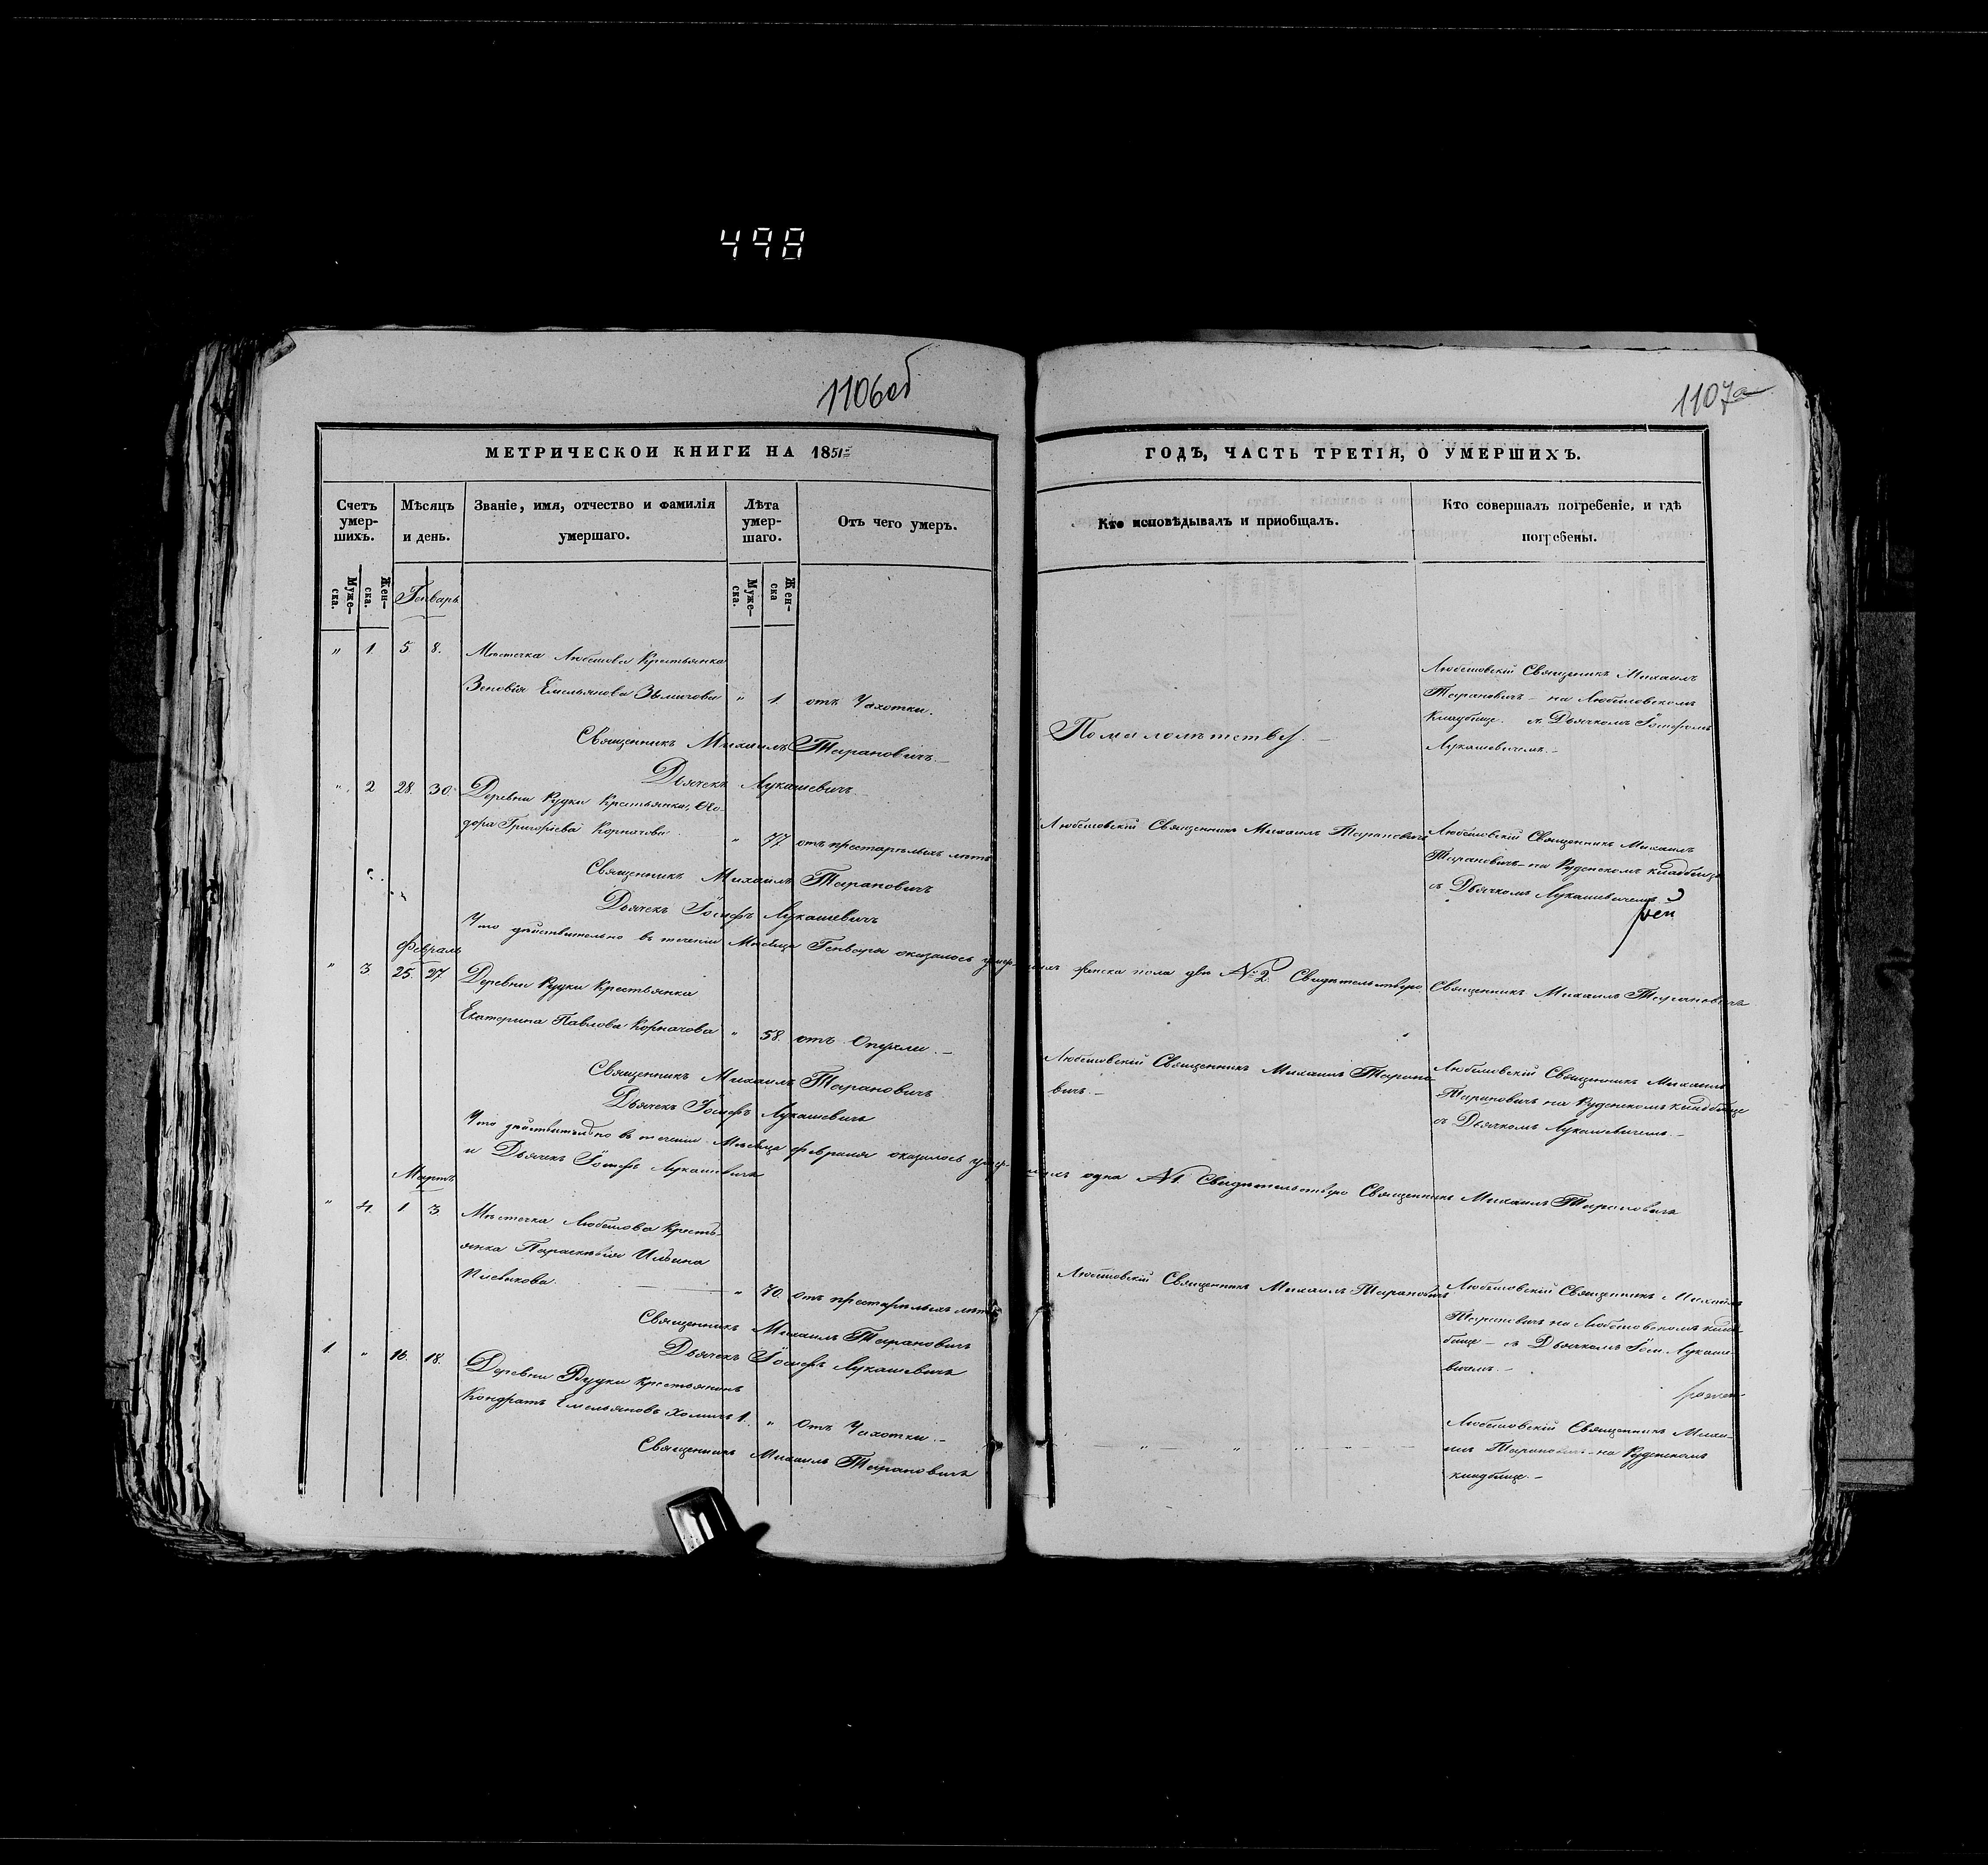 498
1106об
1107а
МЕТРИЧЕСКОИ КНИГИ НА 1851
ГОДЪ, ЧАСТЬ ТРЕТІЯ, О УМЕРШИХЪ.
Счетъ умер-
шихъ.
Муже-
ска.
Жен-
ска.
Мѣсяцъ
и день.
Званіе, имя, отчество и фамилія
умершаго.
Лѣта
умер-
шаго.
Муже-
ска.
Жен-
ска
Отъ чего умеръ.
Кто исповѣдывалъ и пріобщалъ.
Кто совершалъ погребеніе, и гдѣ
погребены.
Генварь
" 1. 5 8. Мѣстечка Любешова Крестьянка
Зеновія Емельянова " 1. отъ Чахотки.
По малолѣтству. –
Любешовскій Священникъ Михаилъ
Тарановичь – на Любешовскомъ
Кладбище съ Дьячкомъ Іосифомъ
Лукашевичемъ. –
Священникъ Михаилъ Тарановичь. –
Дьячекъ Лукашевичъ
" 2 28. 30. Деревни Рудки Крестьянка, Ѳео-
дора Григорьева Корначова " 77 отъ престарѣлыхъ лѣтъ
Любешовскій Священникъ Михаилъ Тарановичь
Любешовскій Священникъ Михаилъ
Тарановичь – на Руденскомъ кладбище
съ Дьячкомъ Лукашевичемъ. –
Священникъ Михаилъ Тарановичь
Дьячекъ Іосифъ Лукашевичъ
Что дѣйствительно въ теченіи Мѣсяца Генваря оказалось умер-шихъ женска пола двѣ № 2. Свидѣтельствую Священникъ Михаилъ Тарановичь
Февраль
" 3. 25. 27. Деревни Рудки Крестьянка
Екатерина Павлова Корначова " 58. отъ Опухли. –
Любешовскій Священникъ Михаилъ Тарано-
вичь. –
Любешовскій Священникъ Михаилъ
Тарановичь на Руденскомъ кладбище
съ Дьячкомъ Лукашевичемъ. –
Священникъ Михаилъ Тарановичь
Дьячекъ Іосифъ Лукашевичъ
Что дѣйствительно въ теченіи Мѣсяца февраля оказалось умер-шихъ одна № 1. Свидѣтельствую Священникъ Михаилъ Тарановичь
и Дьячекъ Іосифъ Лукашевичъ
Мартъ
" 4. 1 3 Мѣстечка Любешова Кресть-
янка Параскевія Ильина
" 70. отъ престарѣлыхъ лѣтъ
Любешовскій Священникъ Михаилъ Тарановичь
Любешовскій Священникъ Михаилъ
Тарановичь на Любешовскомъ клад-
бище – съ Дьячкомъ Іос. Лукаше-
вичемъ. –
Священникъ Михаилъ Тарановичь
Дьячекъ Іосифъ Лукашевичъ
1. " 16. 18. Деревни Рудки Крестьянинъ
Кондратъ Емельяновъ Хомичъ 1. " Отъ Чахотки. –
" " "
Любешовскій Священникъ Миха-
илъ Тарановичь – на Руденскомъ
кладбище. –
Священникъ Михаилъ Тарановичь